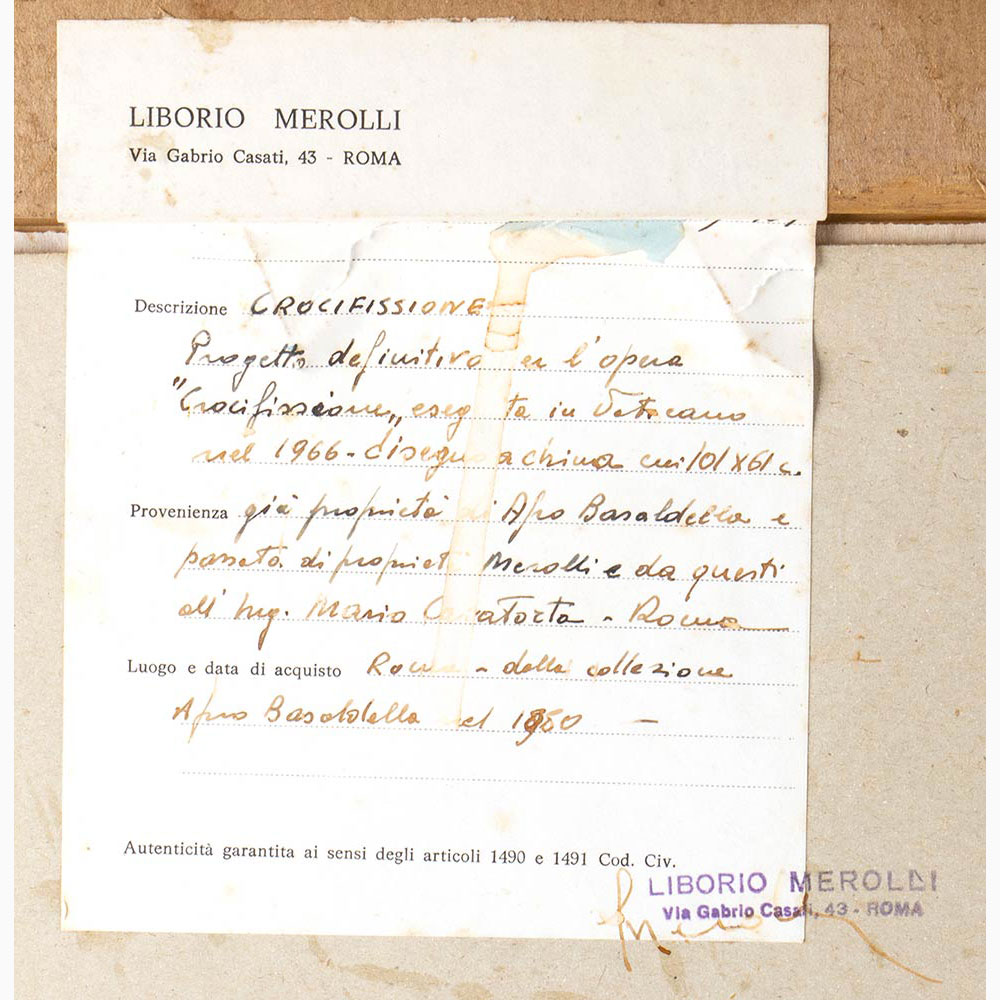 LIBORIO MEROLLI
Via Gabrio Casati, 43 - ROMA
Descrizione CROCIFISSIONE
Progetto definitivo er l'opera
"Crocifissione„ eseg ta in Vaticano
nel 1966 - disegno a china cm 101 x 61 c.
Provenienza già proprietà di Afro Basaldella e
passata di propriet Merolli e da questi
all' Ing. Mario atorta - Roma
Luogo e data di acquisto Roma - dalla collezione
Afro Basaldella el 19 0 —
Autenticità garantita ai sensi degli articoli 1490 e 1491 Cod. Civ.
LIBORIO MEROLLI
Via Gabrio Casati, 43 - ROMA